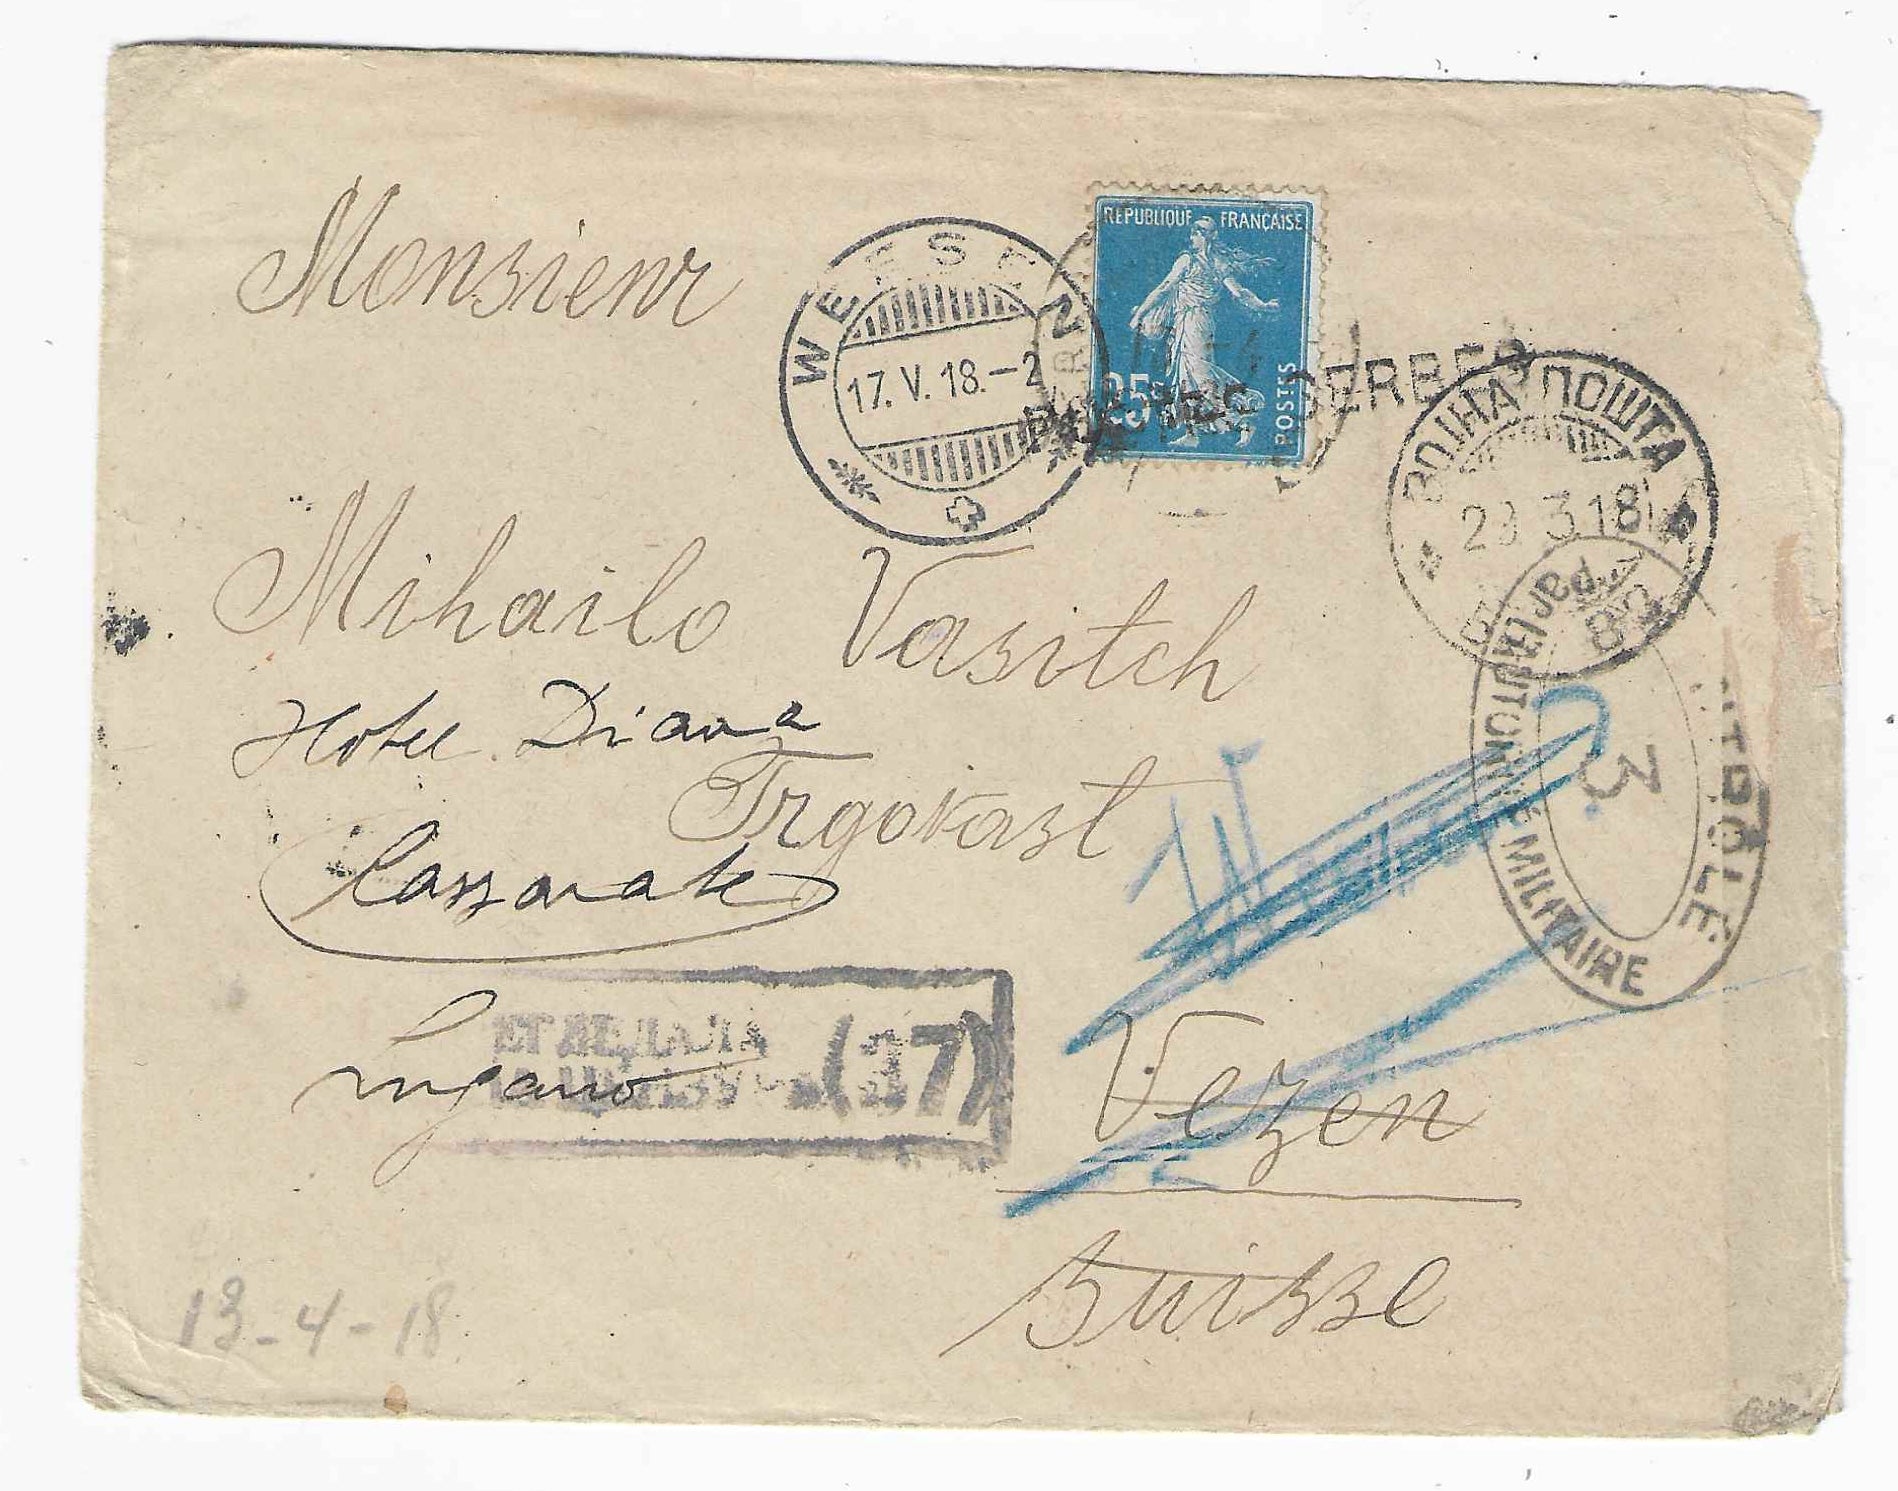 REPUBLIQUE FRANÇAISE
25c
POSTES
WEESEN
17.V.18.-2
POSTES SERBES
ВОЈНА ПОШТА
23 3 18
Monsieur
Mihailo Vasitch
Hotel Diana
Trgovast
Cassarate
Lugano
(37)
Par L'AUTORITÉ MILITAIRE
3
Vezen
Suisse
13-4-18